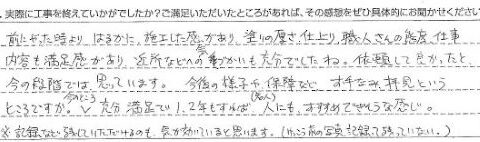 実際に工事を終えていかがでしたか？ご満足いただいたところがあれば、その感想をぜひ具体的にお聞かせください
前にやった時より はるかに、施工した感があり、塗りの厚さ仕上り、職人さんの態度、仕事
内容も満足感があり、近所などへの気づかいも充分でしたね。依頼して良かったと
今の段階では、思っています。 今後の様子や、保障など お手なみ拝見という
ところですが。今のところ充分満足で 1、2年もすれば、人(知人)にも、すすめできそうな感じ。
※記録など残していただけるのも、気が効いていると思います。(けっこう前の写真記録で残っていない。)